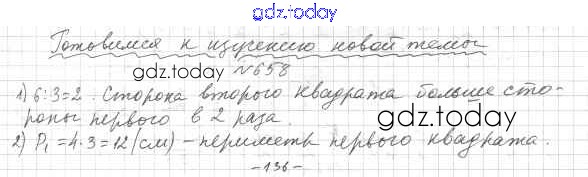 gdz.today
Готовимся к изучению новой темы
gdz.today №658
1) 6:3=2. Сторона второго квадрата больше сто-
роны первого в 2 раза. gdz.today
2) P₁=4·3=12 (см) – периметр первого квадрата.
-136-